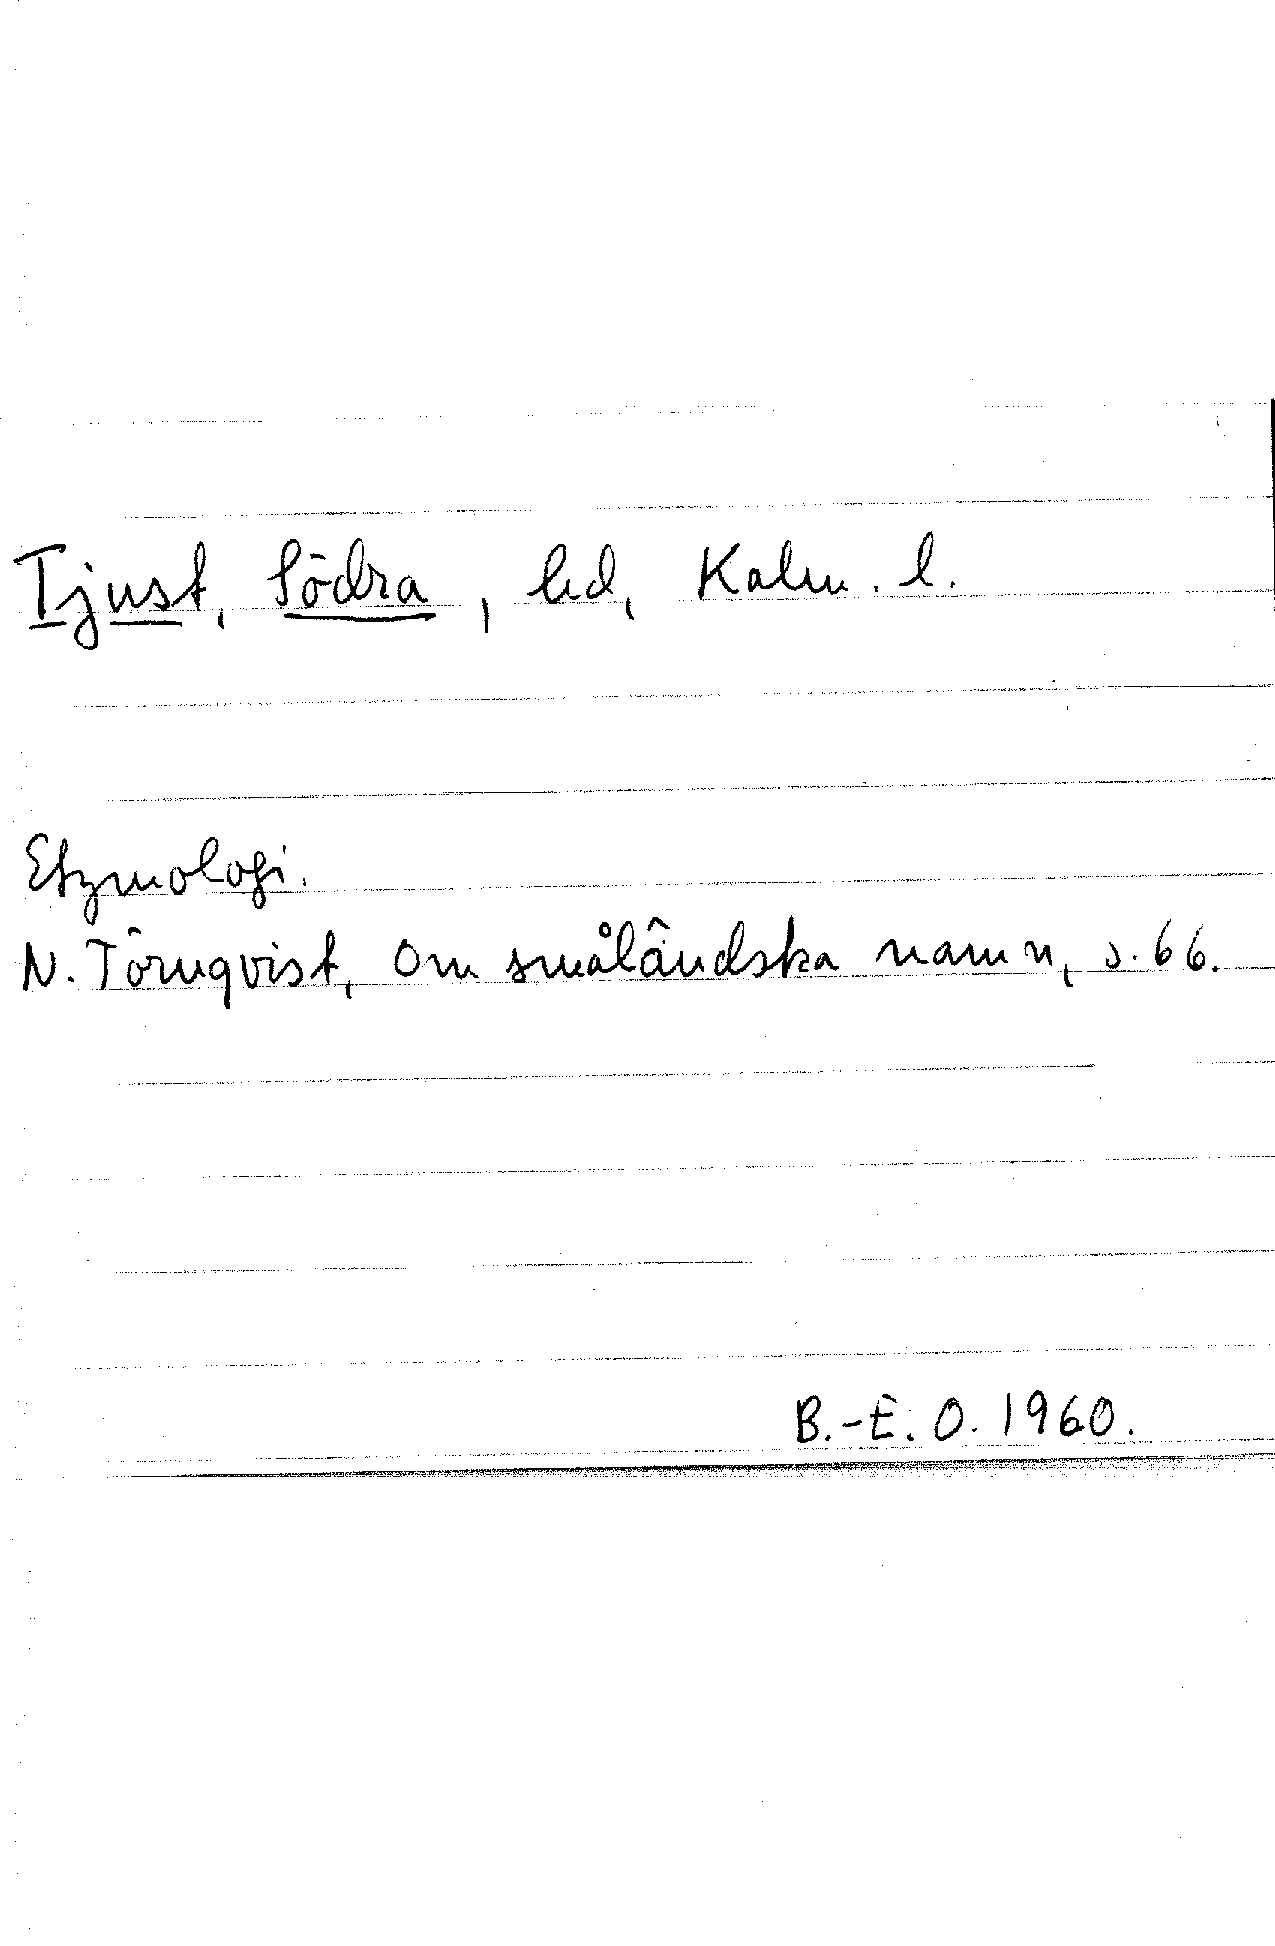 Tjust, Södra, hd, Kalm. l.
Etymologi.
N. Törnqvist, Om småländska namn, s. 66.
B.-E. O. 1960.